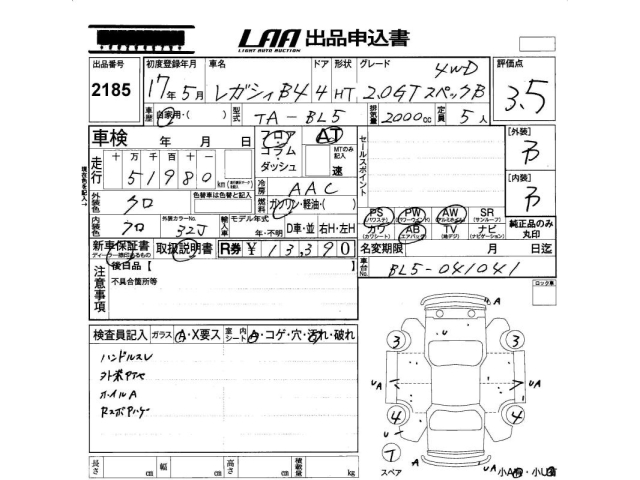 LAA 出品申込書
LIGHT AUTO AUCTION
出品番号 初度登録年月 車名 ドア 形状 グレード 評価点
2185 17年 5月 レガシィB4 4 HT 4WD 2.0GTスペックB 3.5
車歴 自家用・( ) 型式 TA-BL5 排気量 2000cc 定員 5人
車検 年 月 日 フロア コラム ダッシュ AT MTのみ記入 速
セールスポイント
[外装] B
[内装] B
走行 十万千百十 51980 km
冷房 AAC
外装色 クロ 色替車は色替と記入 燃料 ガソリン・軽油・( )
内装色 クロ 外装カラーNo. 32J 輸入車 モデル年式 年・不明 D車・並 右H・左H
PS (パワステ) PW (パワーウインド) AW (アルミホイル) SR (サンルーフ)
カワ (カワシート) AB (エアバッグ) TV (地デジ) ナビ (ナビゲーション)
純正品のみ丸印
新車保証書 取扱説明書 R券 ¥ 13,390
名変期限 月 日迄
車台No. BL5-041041
注意事項 後日品【 】
不具合箇所等
ロック車
検査員記入 ガラス A・X要ス 室内シート A・コゲ・穴・汚れ・破れ
ハンドルスレ
ホイルA
A
U
3 3
UA UA
4 4
U
7
スペア
UA
A
小A 小U
長さ cm 幅 cm 高さ cm 積載量 kg